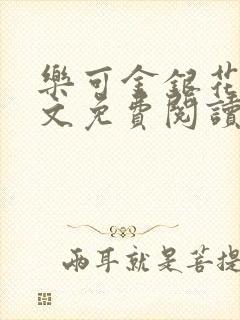 樂可金銀花
文免費閱讀
兩耳就是菩提